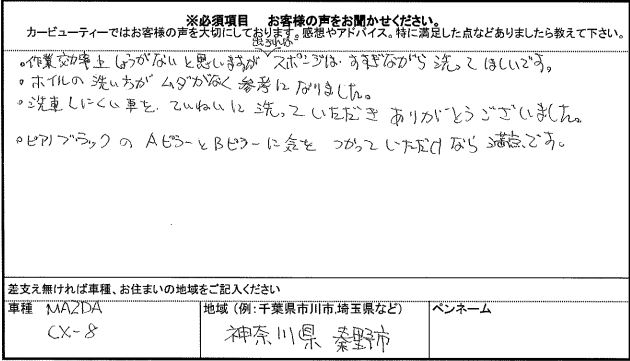 ※必須項目　お客様の声をお聞かせください。
カービューティーではお客様の声を大切にしております。感想やアドバイス。特に満足した点などありましたら教えて下さい。
出来れば
。作業効率上しょうがないと思いますが スポンジは、すすぎながら洗ってほしいです。
。ホイルの洗い方がムダがなく参考になりました。
。洗車しにくい車を、ていねいに洗っていただきありがとうございました。
。ピアノブラックのAピラーとBピラーに気をつかっていただけなら満点です。
差支え無ければ車種、お住まいの地域をご記入ください
車種 MAZDA
CX-8
地域（例：千葉県市川市,埼玉県など）
神奈川県 秦野市
ペンネーム